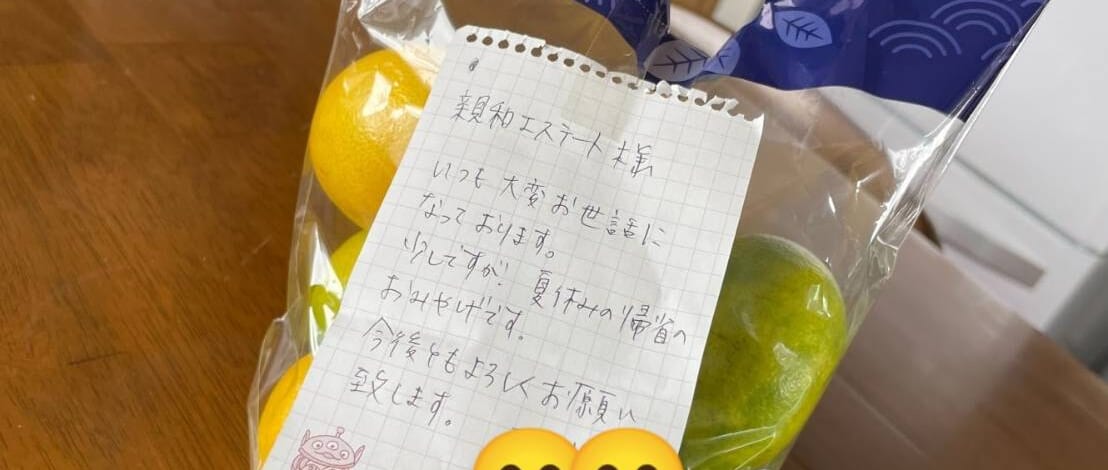 親和エステート様
いつも大変お世話に
なっております。
少しですが！夏休みの帰省の
おみやげです。
今後ともよろしくお願い
致します。